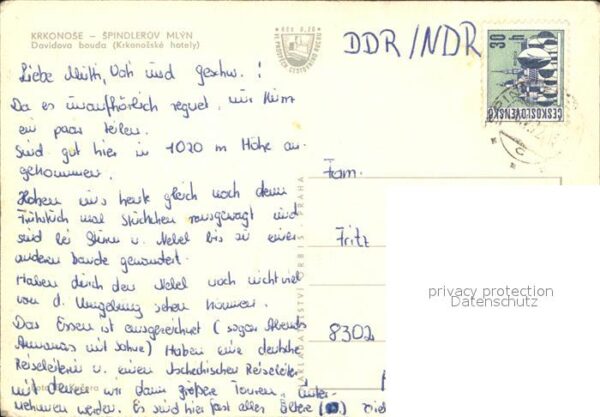 KRKONOŠE – ŠPINDLEROV MLÝN
Davidova bouda (Krkonošské hotely)
Kčs 0,20
DDR/NDR
30 h
ČESKOSLOVENSKO
Liebe Mutti, Vati und Geschw.!
Da es unaufhörlich regnet, nur kurz
ein paar Zeilen.
Sind gut hier in 1020 m Höhe an-
gekommen.
Haben uns heut gleich nach dem
Frühstück mal rausgewagt und
sind bei Sturm u. Nebel bis zu einer
anderen Baude gewandert.
Haben durch den Nebel noch nicht viel
von d. Umgebung sehen können.
Das Essen ist ausgezeichnet (sogar Abends
Ananas mit Sahne) Haben eine deutsche
Reiseleiterin u. einen Tschechischen Reiseleiter
mit denen wir dann größere Touren unter-
nehmen werden. Es sind hier fast alles ältere
Fam.
Fritz
8302
NAKLADATELSTVÍ ORBIS, PRAHA
privacy protection
Datenschutz